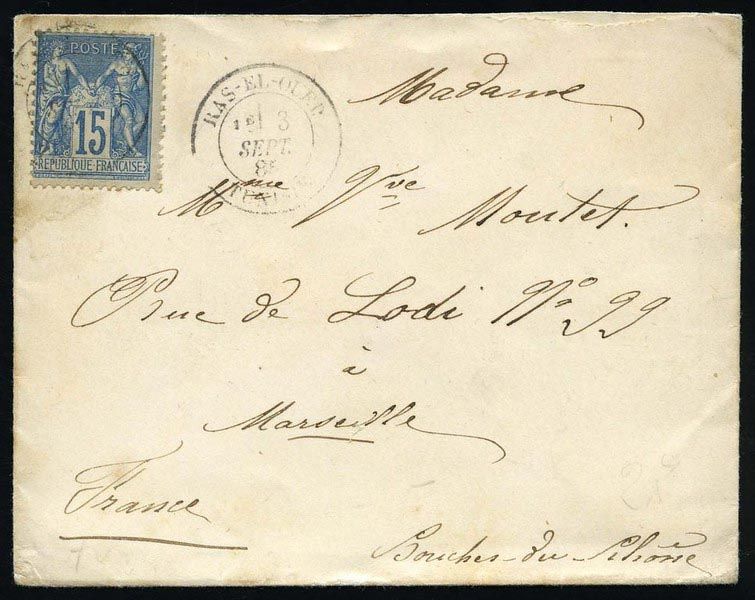 POSTE
15
REPUBLIQUE FRANÇAISE
RAS-EL-OUED
1E 3
SEPT.
TUNISIE
Madame
Mme Vve Moutet.
Rue de Lodi No 99
à
Marseille
France
Bouches-du-Rhône